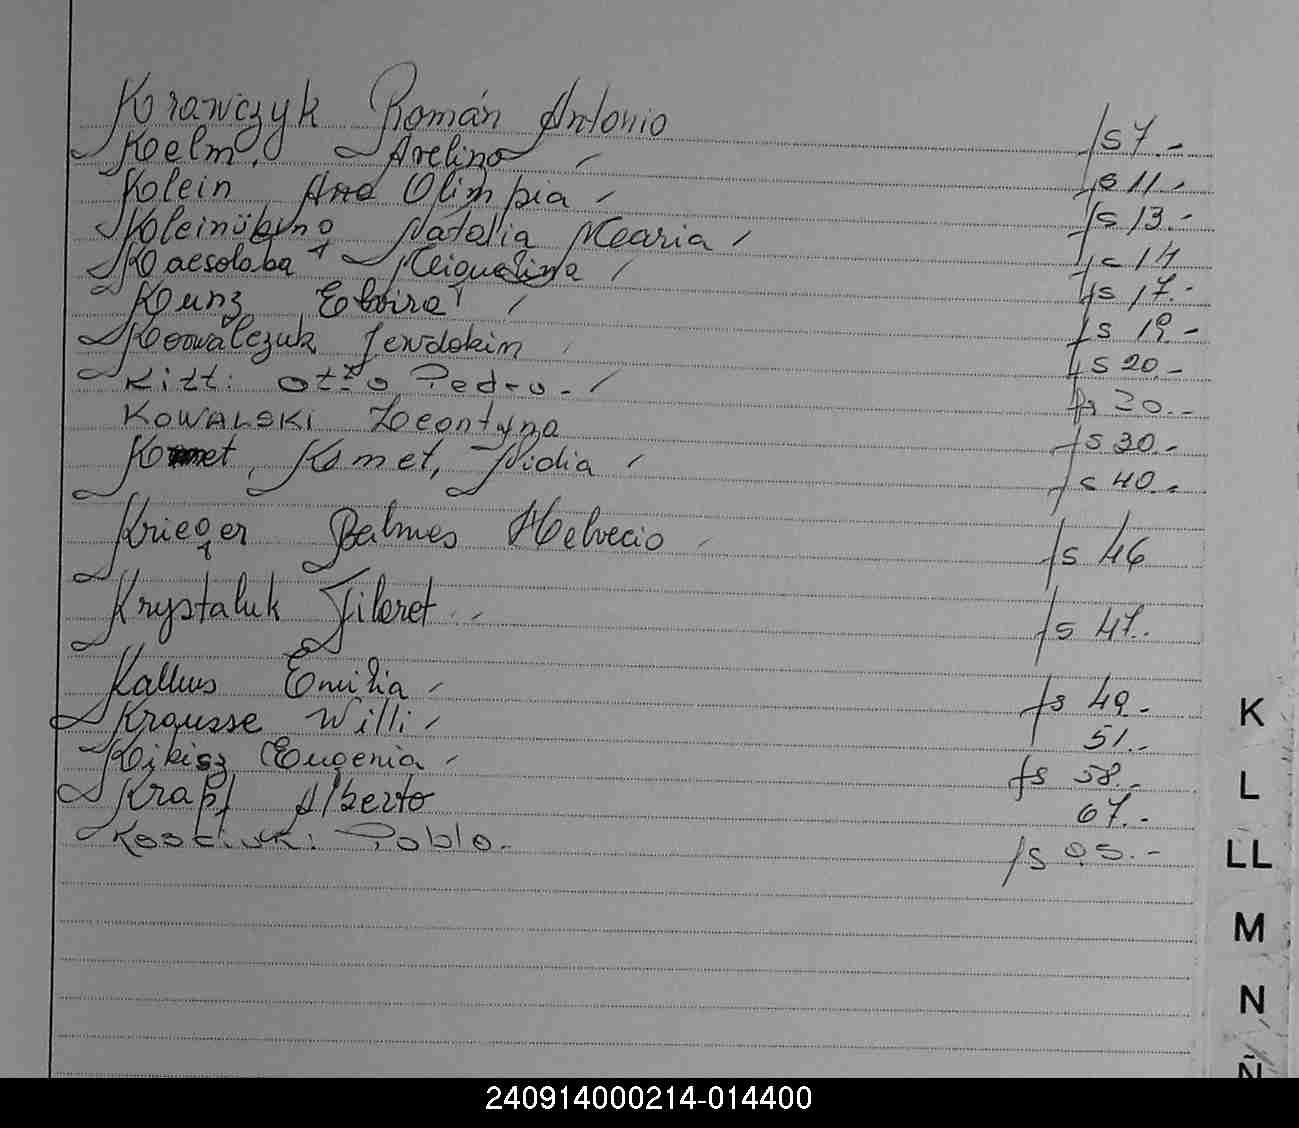 Krawczyk Román Antonio fs 7.-
Kelm. Avelino fs 11.-
Klein Ana Olimpia fs 13.-
Kleinübing Natalia Maria fs 14
Miquelina fs 17.-
Kunz Elvira fs 19.-
Kowalczuk Jewdokim fs 20.-
Kitt. Otto Pedro.- fs 20.-
KOWALSKI Leontyna fs 30.-
Kmet, Kmet, Nidia fs 40.-
Krieger Balmes Helvecio fs 46
Krystaluk Filaret fs 47.-
Kallus Emilia fs 49.-
Krausse Willi 51.-
Kikisz Eugenia fs 58.-
Krapf Alberto 67.-
Pablo.- fs 95.-
K
L
LL
M
N
Ñ
240914000214-014400